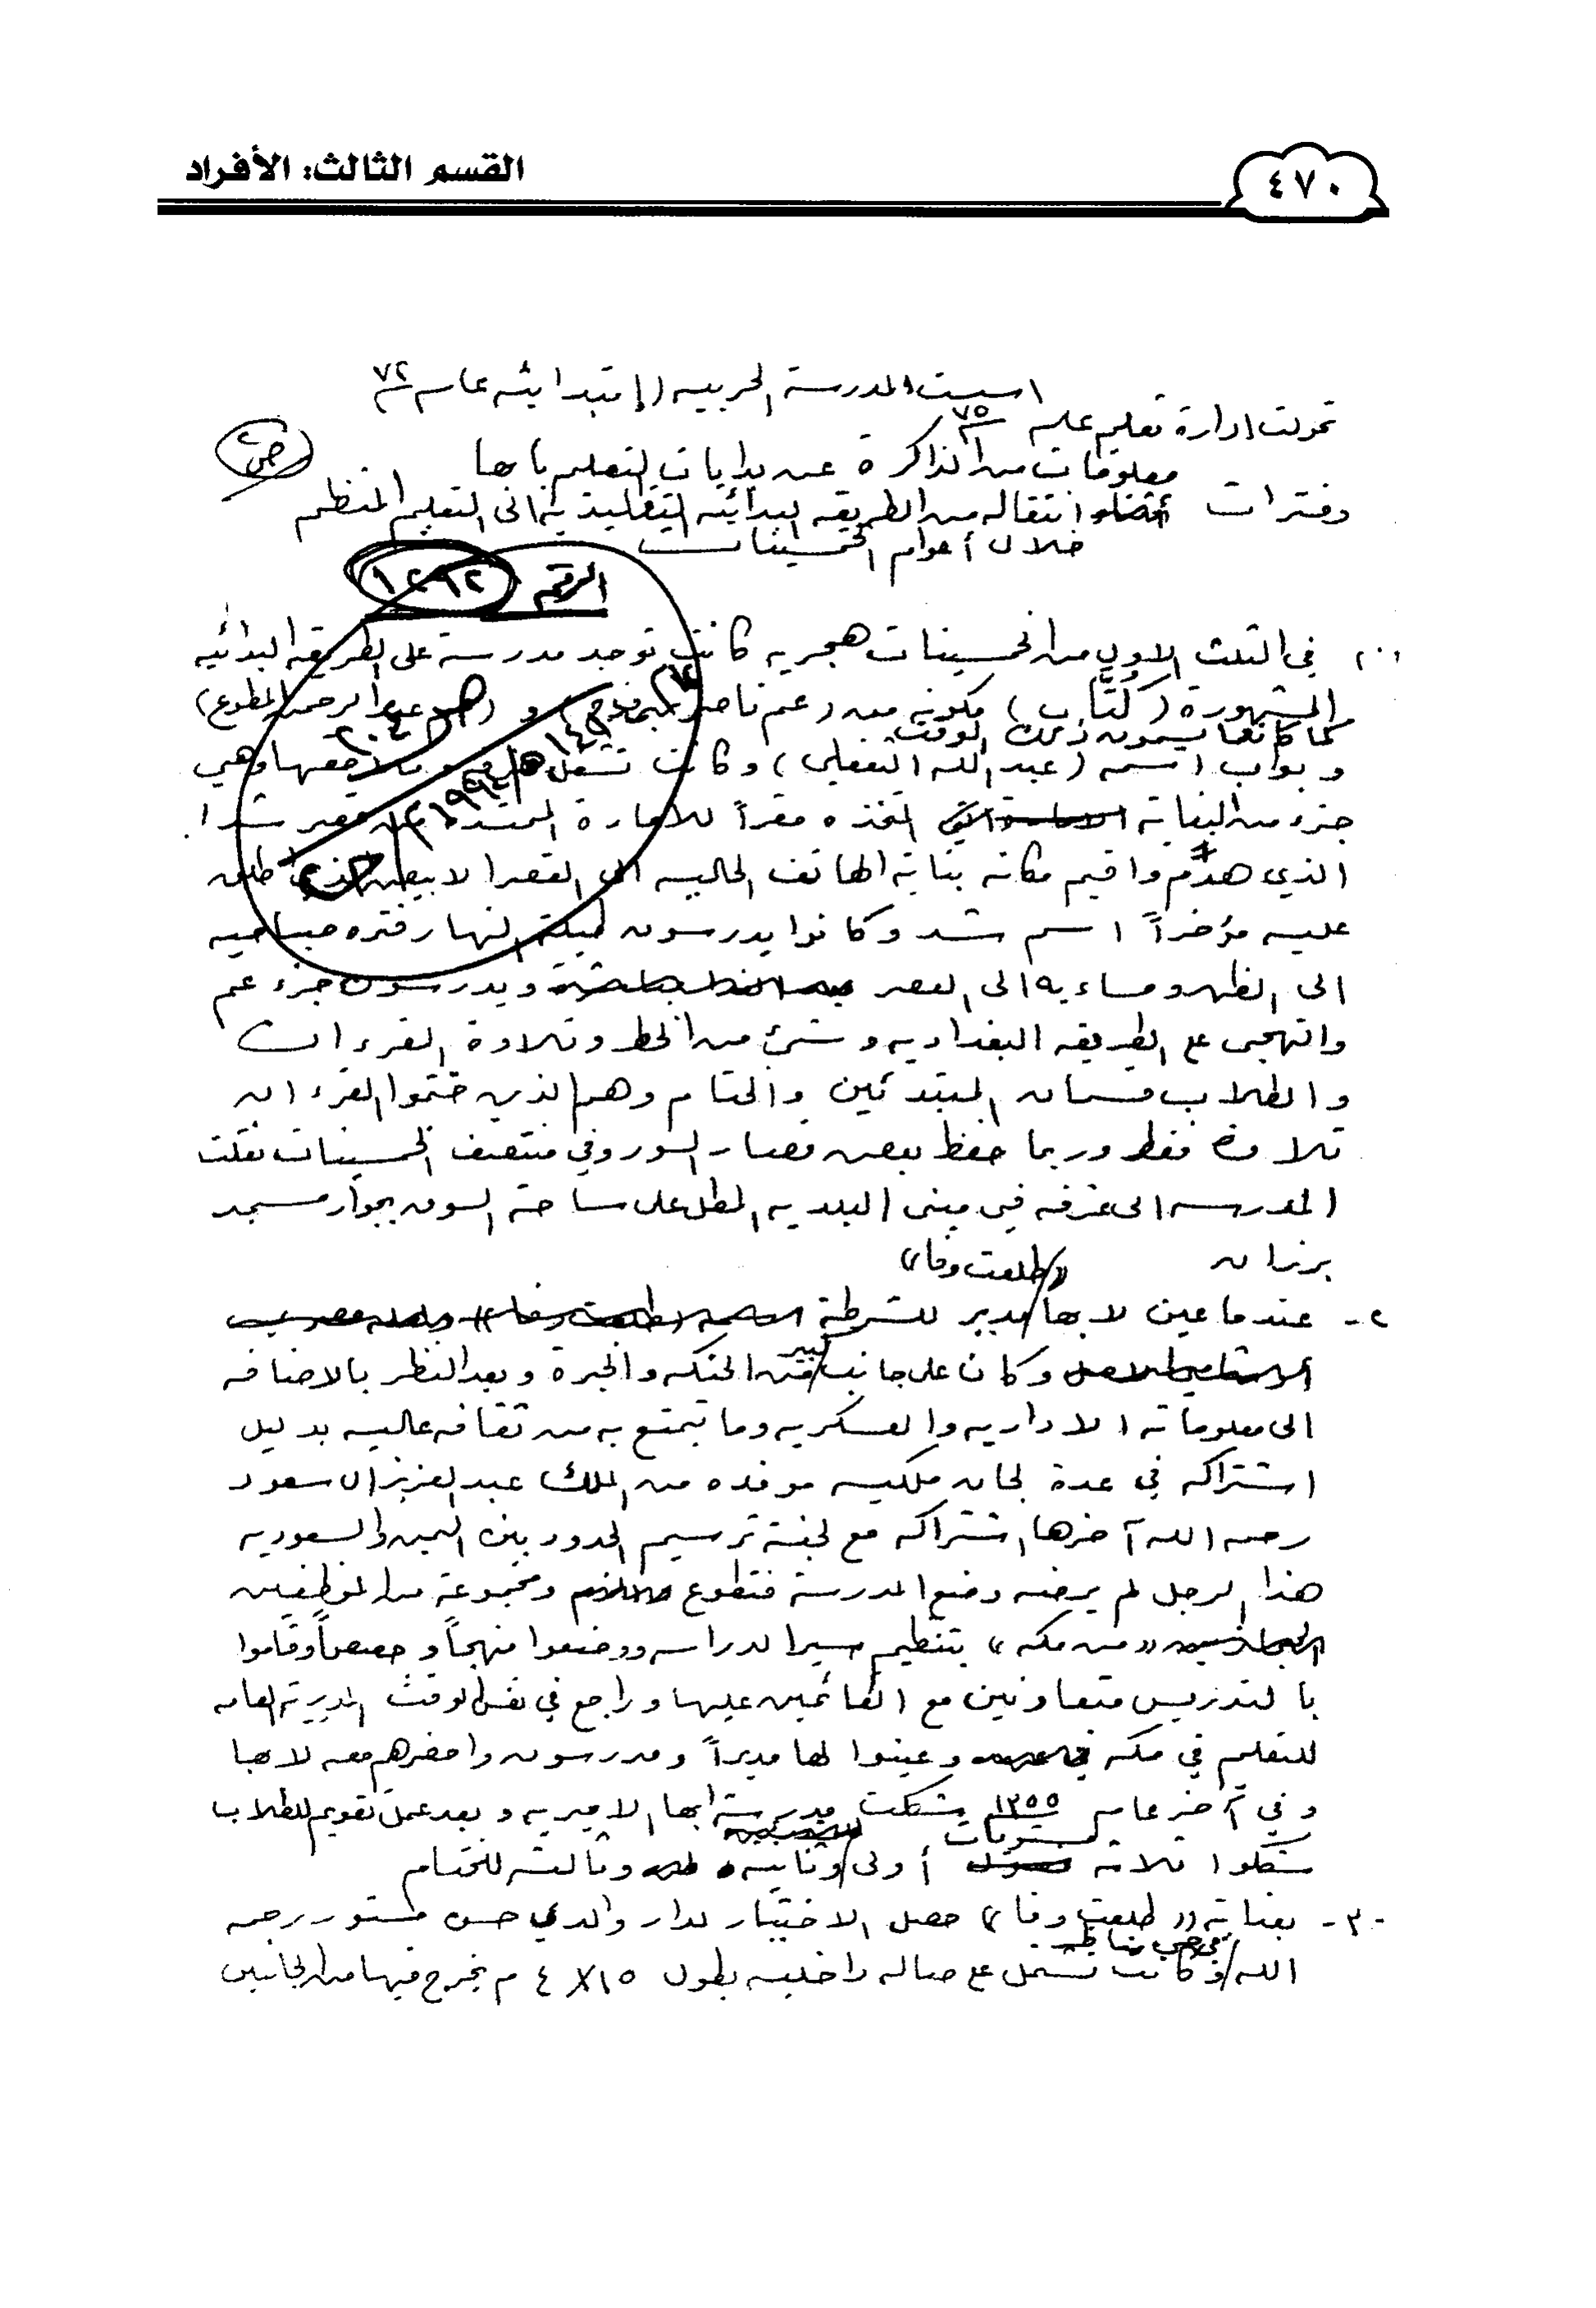 القسم الثالث: الأفراد
٤٧٠
اسست المدرسة الحربيه (إبتدائيه عام ٧٢
تحولت ادارة تعليم عام ٧٥
معلومات من الذاكرة عن بدايات التعليم بابها
ص٢
وفترات انتقاله من الطريقه البدائيه التقليديه الى التعليم المنظم
خلال أعوام الخمسينات
الرقم ١٢٩٢
١- في الثلث الاول من الخمسينات هجريه كانت توجد مدرسة على الطريقه البدائيه
المشهورة (كُتَّاب) مكونه من (عم ناصر و (عبد الرحمن المطوع)
كما كانوا يسمونه ذلك الوقت
وبواب اسمه (عبد الله الفغلي) وكانت تشغل وهي
جزء من البنايه المتخذه مقراً للامارة الممتده من قصر شدا
الذي هدم واقيم مكانه بناية الهاتف الحاليه الى القصر الابيض الذي اطلق
عليه مؤخراً اسم شدا وكانوا يدرسون طيلة النهار فتره صباحيه
الى الظهر ومساءيه الى العصر ويدرسون جزء عم
والتهجى على الطريقه البغداديه وشئ من الخط وتلاوة القرءان
والطلاب قسمان المبتدئين والختام وهم الذين ختموا القرءان
تلاوة فقط وربما حفظ بعض قصار السور وفي منتصف الخمسينات نقلت
المدرسه الى غرفه في مبنى البلديه المطل على ساحة السوق بجوار مسجد
برزان
«طلعت وفا»
٢- عندما عين لابها مدير للشرطة
وكان على جانب كبير من الحنكه والخبرة وبعد النظر بالاضافه
الى معلوماته الاداريه والعسكريه وما يتمتع به من ثقافه عاليه بدليل
اشتراكه في عدة لجان ملكيه موفده من الملك عبد العزيز ال سعود
رحمه الله آخرها اشتراكه مع لجنة ترسيم الحدود بين اليمن والسعوديه
هذا الرجل لم يرضه وضع المدرسة فتطوع ومجموعة من الموظفين
«من مكه» بتنظيم سير الدراسه ووضعوا منهجاً وحصصاً وقاموا
بالتدريس متعاونين مع القائمين عليها وراجع في نفس الوقت المديرية العامه
للتعليم في مكه وعينوا لها مديراً ومدرسون واحضرهم معه لابها
وفي آخر عام ١٣٥٥ شكلت مدرسة ابها الاميريه وبعد عمل تقويم للطلاب
شكلوا ثلاثة مستويات أولى وثانيه وثالثه للختام
٣- بعناية «طلعت وفا» حصل الاختيار لدار والدي حسن مستور رحمه
الله وكانت تشمل على صاله داخليه بطول ١٥×٤ م يخرج فيها من الجانبين